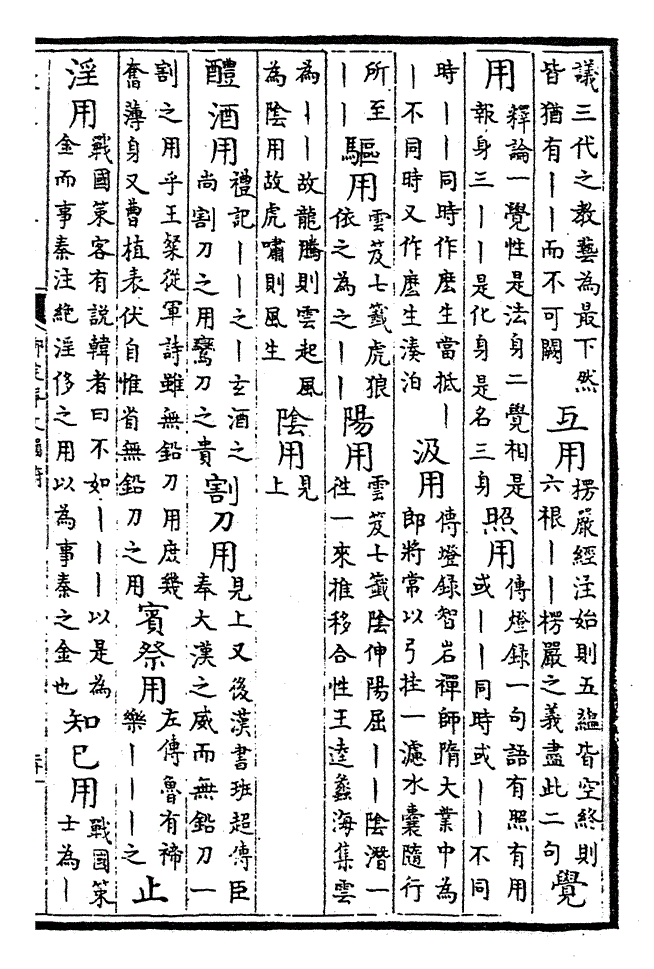 議三代之教藝為最下然
皆猶有丨丨而不可闕
互用
楞嚴經注始則五緼皆空終則
六根丨丨楞嚴之義盡此二句
覺
用
釋論一覺性是法身二覺相是
報身三丨丨是化身是名三身
照用
傳燈錄一句語有照有用
或丨丨同時或丨丨不同
時丨丨同時作麽生當抵丨
丨不同時又作麽生湊泊
汲用
傳燈錄智岩禪師隋大業中為
郎將常以弓挂一濾水囊隨行
所至
丨丨
驅用
雲笈七籤虎狼
依之為之丨丨
陽用
雲笈七籤陰伸陽屈丨丨陰潛一
徃一來推移合性王逵蠡海集雲
為丨丨故龍騰則雲起風
為陰用故虎嘯則風生
陰用
見
上
醴酒用
禮記丨丨之丨玄酒之
尚割刀之用鸞刀之貴
割刀用
見上又後漢書班超傳臣
奉大漢之威而無鉛刀一
割之用乎王粲從軍詩雖無鉛刀用庶幾
奮薄身又曹植表伏自惟省無鉛刀之用
賓祭用
左傳魯有禘
樂丨丨丨之
止
淫用
戰國策客有説韓者曰不如丨丨丨以是為
金而事秦注絶淫侈之用以為事秦之金也
知已用
戰國策
士為丨